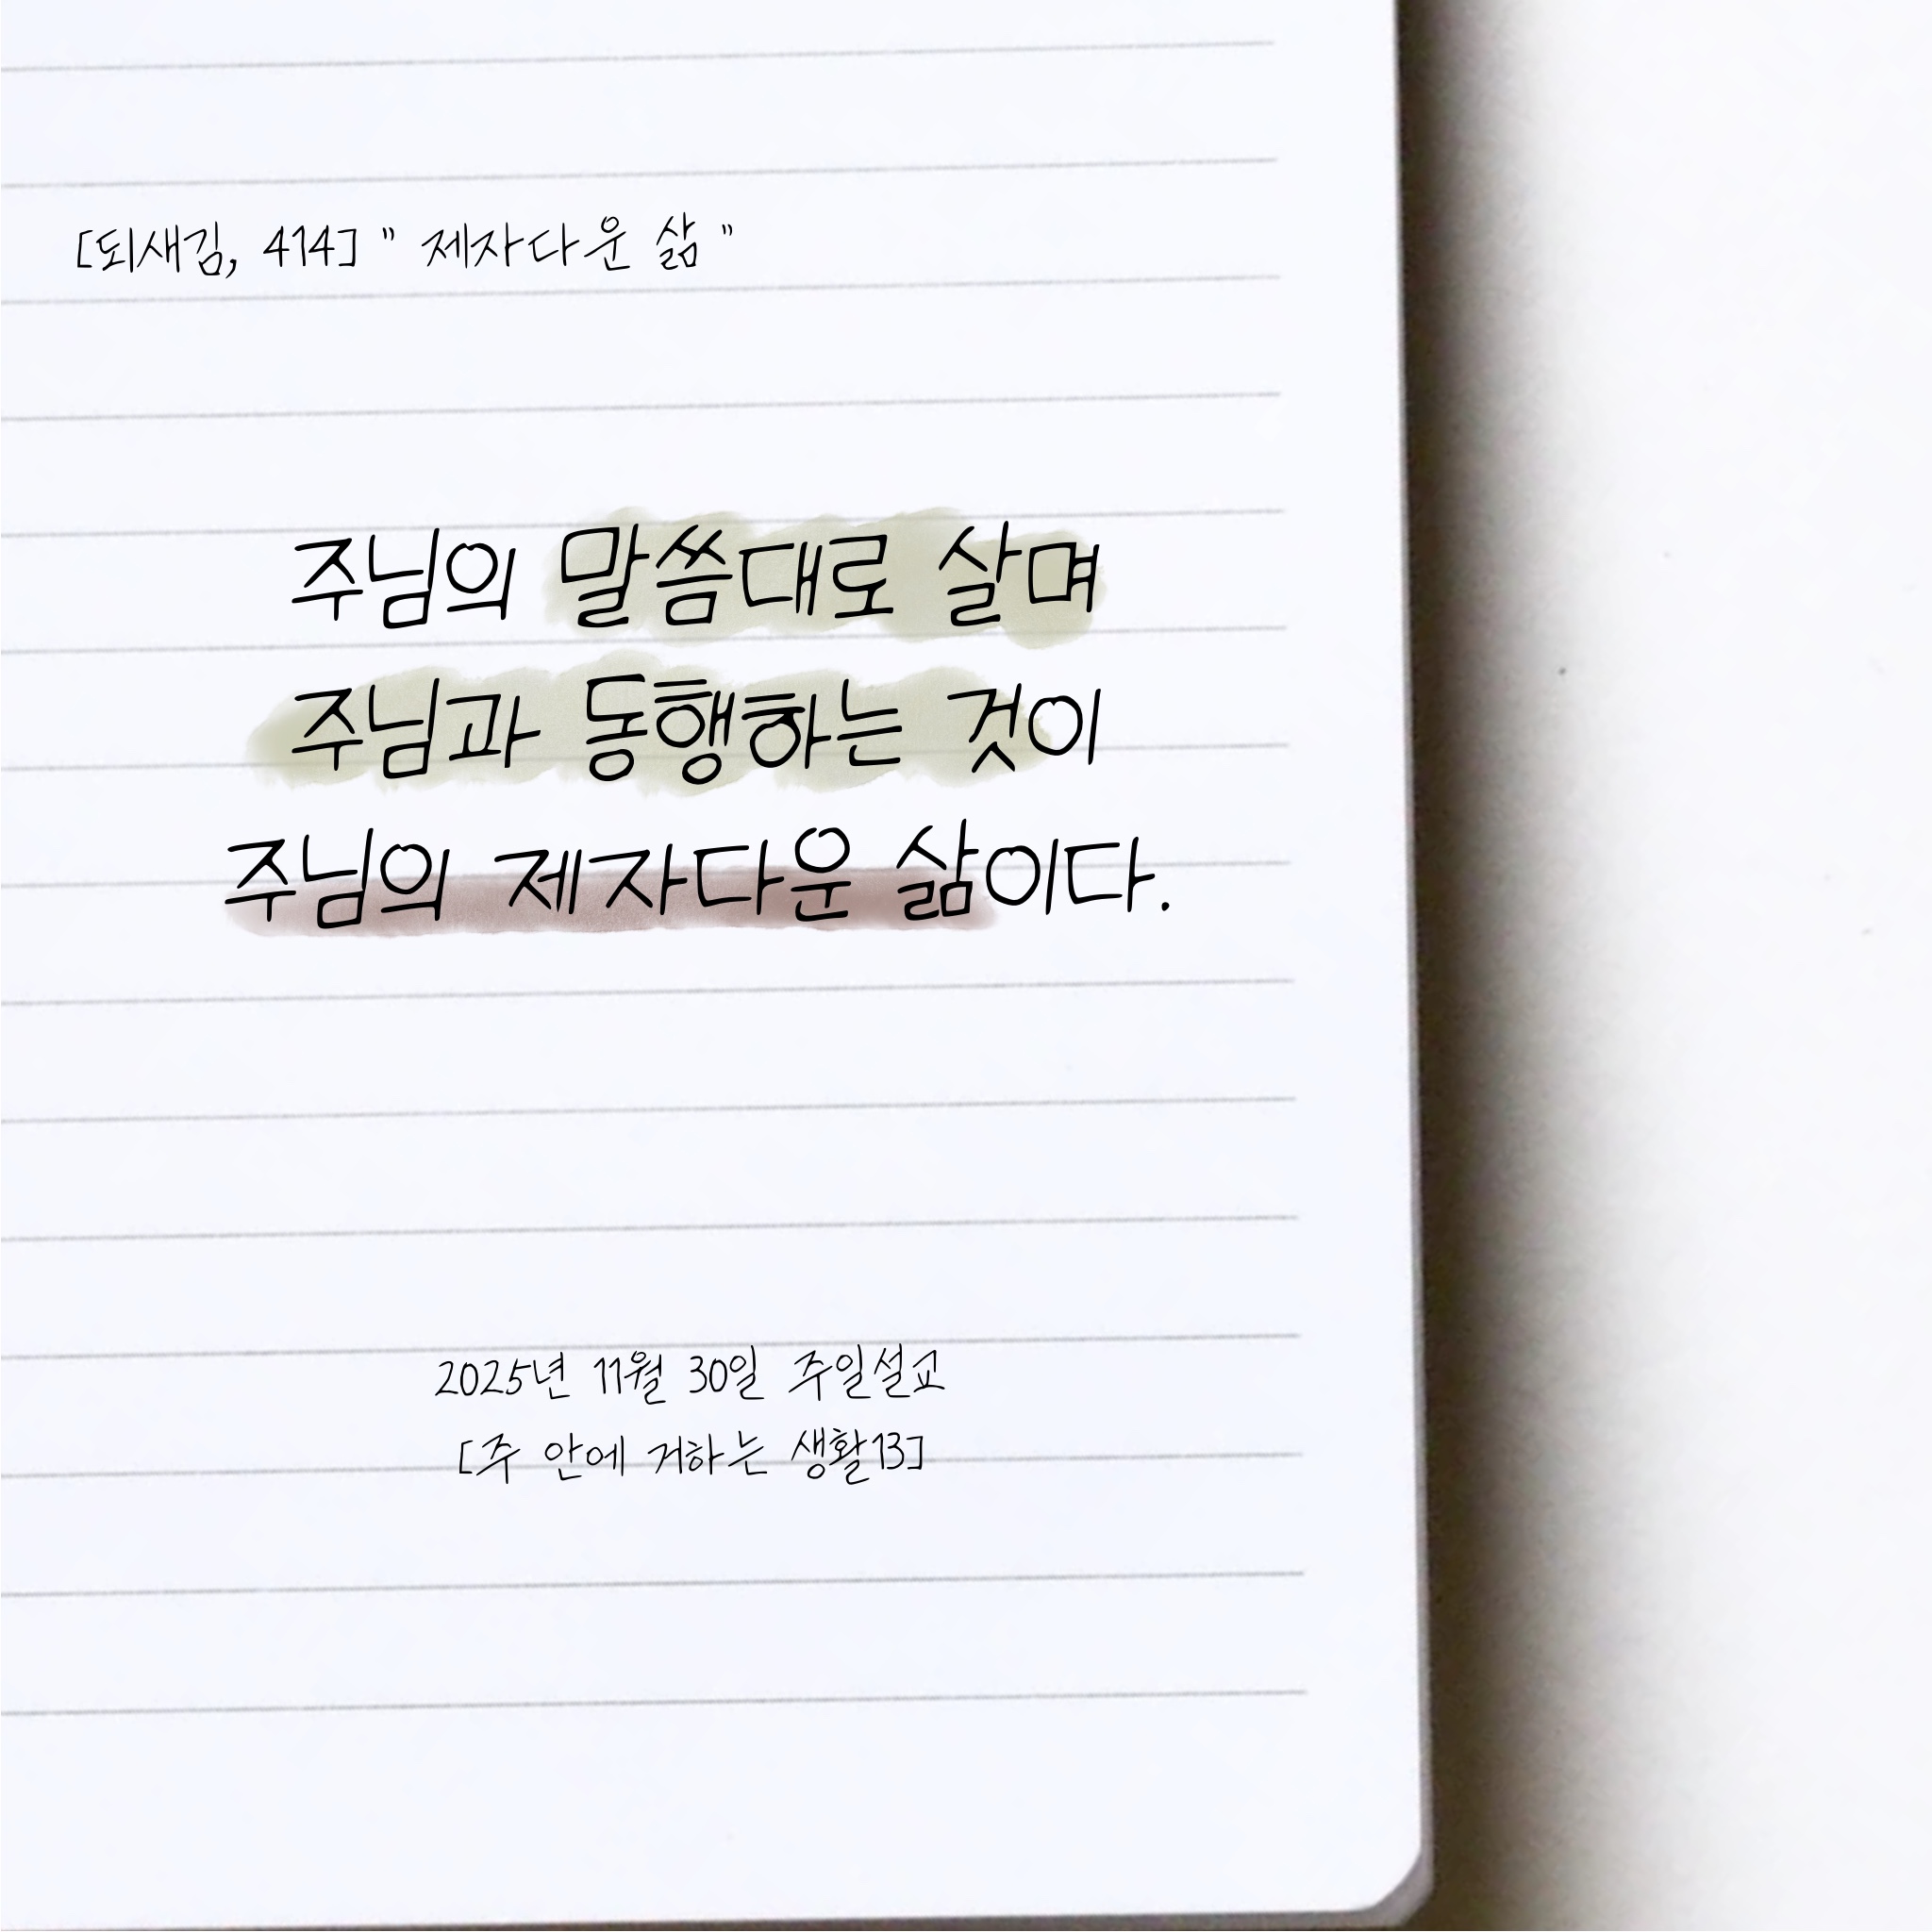 [되새김, 414] " 제자다운 삶 "
주님의 말씀대로 살며
주님과 동행하는 것이
주님의 제자다운 삶이다.
2025년 11월 30일 주일설교
[주 안에 거하는 생활13]